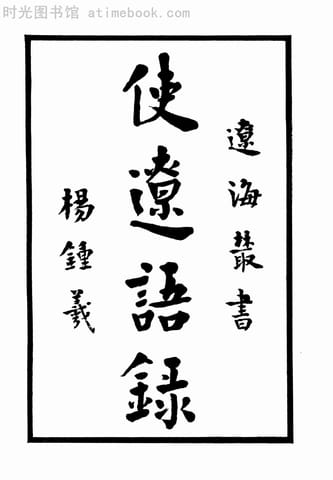 时光图书馆 atimebook.com
遼海叢書
使遼語錄
楊鍾羲